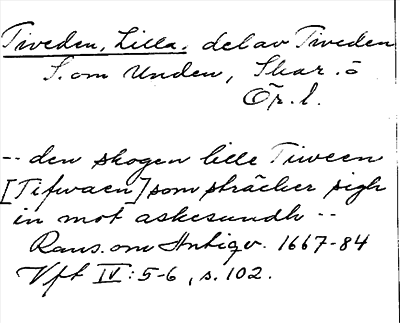 Tiveden, Lilla, del av Tiveden
S. om Unden, Skar. o
Ör. l.
-- den skogen lille Tiween
[Tifwaen] som sträcker sigh
in mot askesundh --
Rans. om Antiqv. 1667-84
Vft IV: 5-6, s. 102.